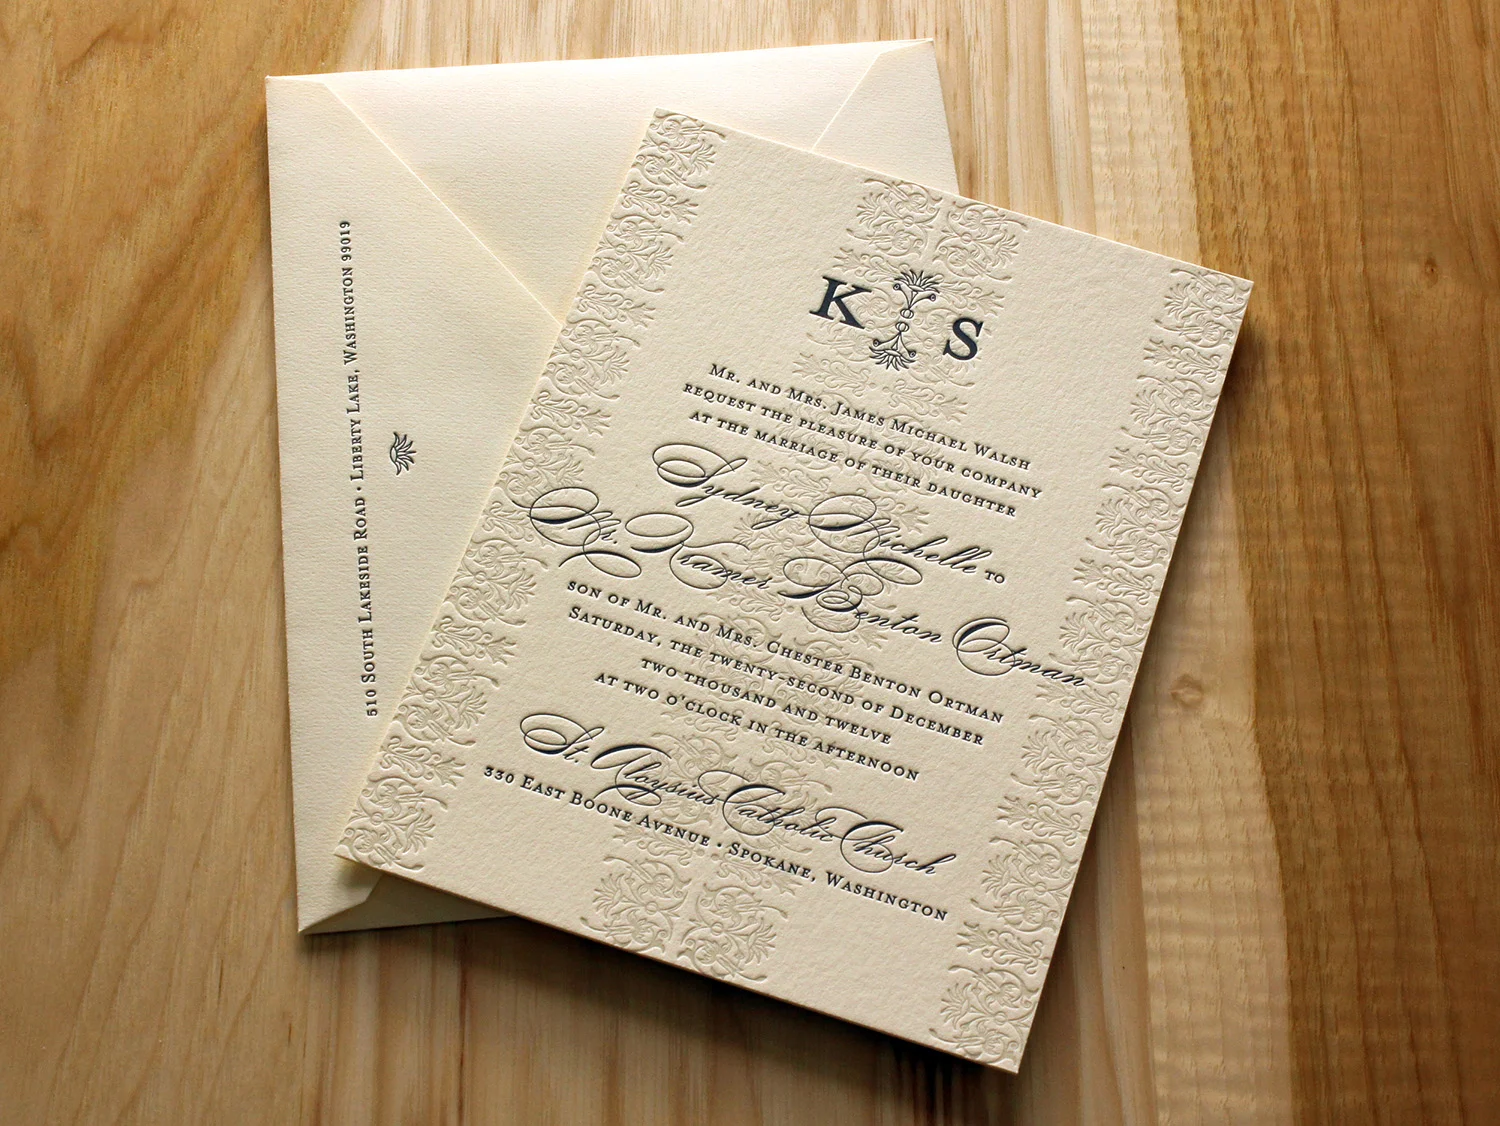 510 South Lakeside Road • Liberty Lake, Washington 99019
K S
Mr. and Mrs. James Michael Walsh
request the pleasure of your company
at the marriage of their daughter
Sydney Michelle to
Mr. Kramer Benton Ortman
son of Mr. and Mrs. Chester Benton Ortman
Saturday, the twenty-second of December
two thousand and twelve
at two o'clock in the afternoon
St. Aloysius Catholic Church
330 East Boone Avenue • Spokane, Washington